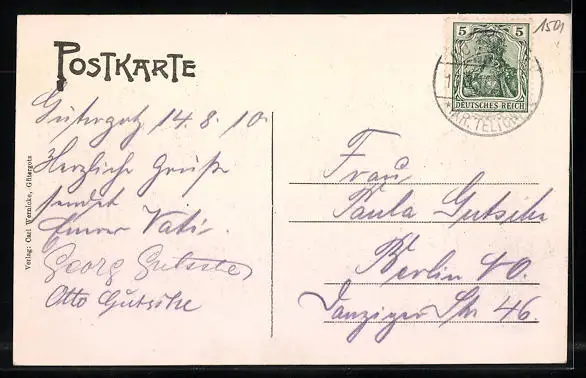 POSTKARTE
Gütergotz 14.8.10.
Herzliche Grüße
sendet
Eurer Vati.
Georg Gutsche
Otto Gutsche
Verlag: Carl Wernicke, Gütergotz
1501
5 5
DEUTSCHES REICH
(KR. TELTOW)
Frau
Paula Gutsche
Berlin NO.
Danziger Str 46.